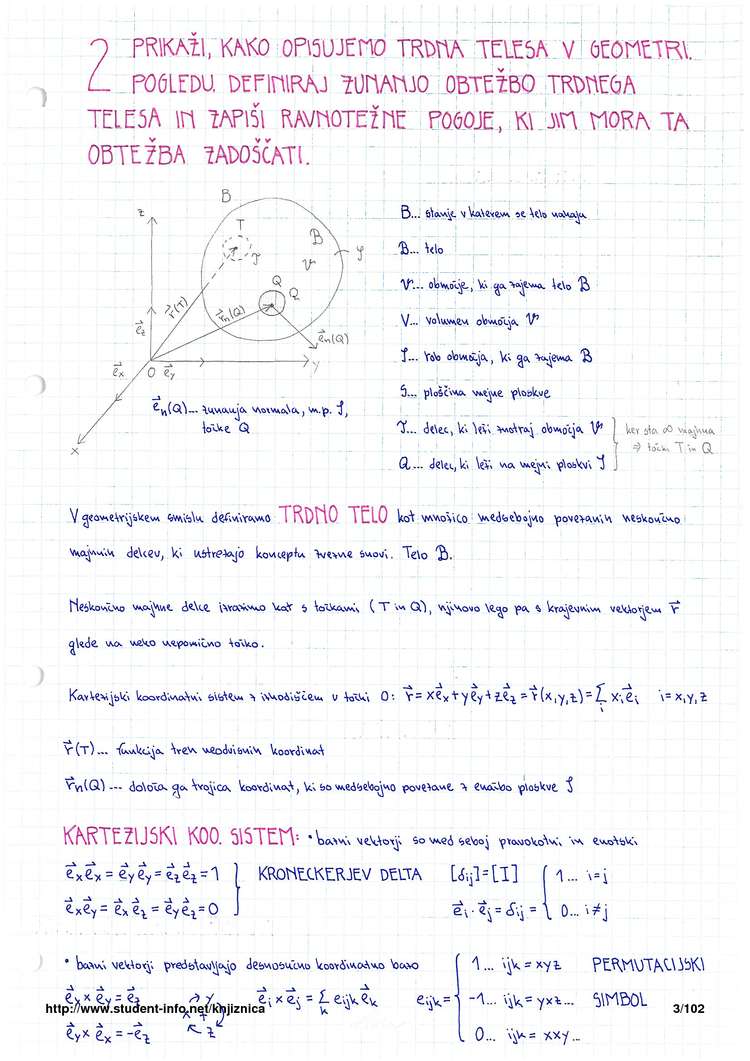 2 PRIKAŽI, KAKO OPISUJEMO TRDNA TELESA V GEOMETRI.
POGLEDU. DEFINIRAJ ZUNANJO OBTEŽBO TRDNEGA
TELESA IN ZAPIŠI RAVNOTEŽNE POGOJE, KI JIM MORA TA
OBTEŽBA ZADOŠČATI.
B
z
T
B
𝒯
𝒱
𝒮
Q
Q
r⃗(T)
r⃗n(Q)
e⃗z
e⃗n(Q)
y
e⃗x
O e⃗y
x
e⃗n(Q)... zunanja normala, m.p. 𝒮,
točke Q
B... stanje v katerem se telo nahaja
B... telo
𝒱... območje, ki ga zajema telo B
V... volumen območja 𝒱
𝒮... rob območja, ki ga zajema B
S... ploščina mejne ploskve
𝒯... delec, ki leži znotraj območja 𝒱
Q... delec, ki leži na mejni ploskvi 𝒮
ker sta ∞ majhna
⇒ točki T in Q
V geometrijskem smislu definiramo TRDNO TELO kot množico medsebojno povezanih neskončno
majhnih delcev, ki ustrezajo konceptu zvezne snovi. Telo B.
Neskončno majhne delce izrazimo kot s točkami (T in Q), njihovo lego pa s krajevnim vektorjem r⃗
glede na neko nepomično točko.
Kartezijski koordinatni sistem z izhodiščem v točki O: r⃗ = xe⃗x + ye⃗y + ze⃗z = r⃗(x,y,z) = Σi xi e⃗i i = x,y,z
r⃗(T)... funkcija treh neodvisnih koordinat
r⃗n(Q)... določa ga trojica koordinat, ki so medsebojno povezane z enačbo ploskve 𝒮
KARTEZIJSKI KOO. SISTEM: • bazni vektorji so med seboj pravokotni in enotski
e⃗xe⃗x = e⃗ye⃗y = e⃗ze⃗z = 1 KRONECKERJEV DELTA [δij] = [I] 1... i=j
e⃗xe⃗y = e⃗xe⃗z = e⃗ye⃗z = 0 e⃗i · e⃗j = δij = 0... i≠j
• bazni vektorji predstavljajo desnosučno koordinatno bazo 1... ijk = xyz PERMUTACIJSKI
e⃗x × e⃗y = e⃗z x y z e⃗i × e⃗j = Σk eijk e⃗k eijk = -1... ijk = yxz... SIMBOL
http://www.student-info.net/knjiznica 3/102
e⃗y × e⃗x = -e⃗z 0... ijk = xxy...